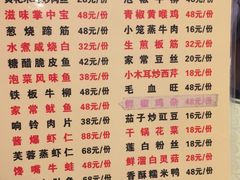 滋味掌中宝 48元/份
葱烧蹄筋 48元/份
水煮咸烧白 32元/份
糖醋脆皮鱼 52元/份
泡菜风味鱼 52元/份
铁板牛柳 48元/份
家常鱿鱼 58元/份
响铃肉片 38元/份
酱爆虾仁 68元/份
芙蓉蒸虾仁 68元/份
馋嘴牛蛙 68元/份
青椒黄喉鸡 48元/份
小笼蒸牛肉 26元/份
生煎板筋 32元/份
家常豆丝 20元/份
小木耳炒西芹 18元/份
毛血旺 48元/份
茄子炒豇豆 16元/份
干锅花菜 18元/份
莲白粉丝 18元/份
鲜溜白灵菇 28元/份
香酥糯米鸭 48元/份